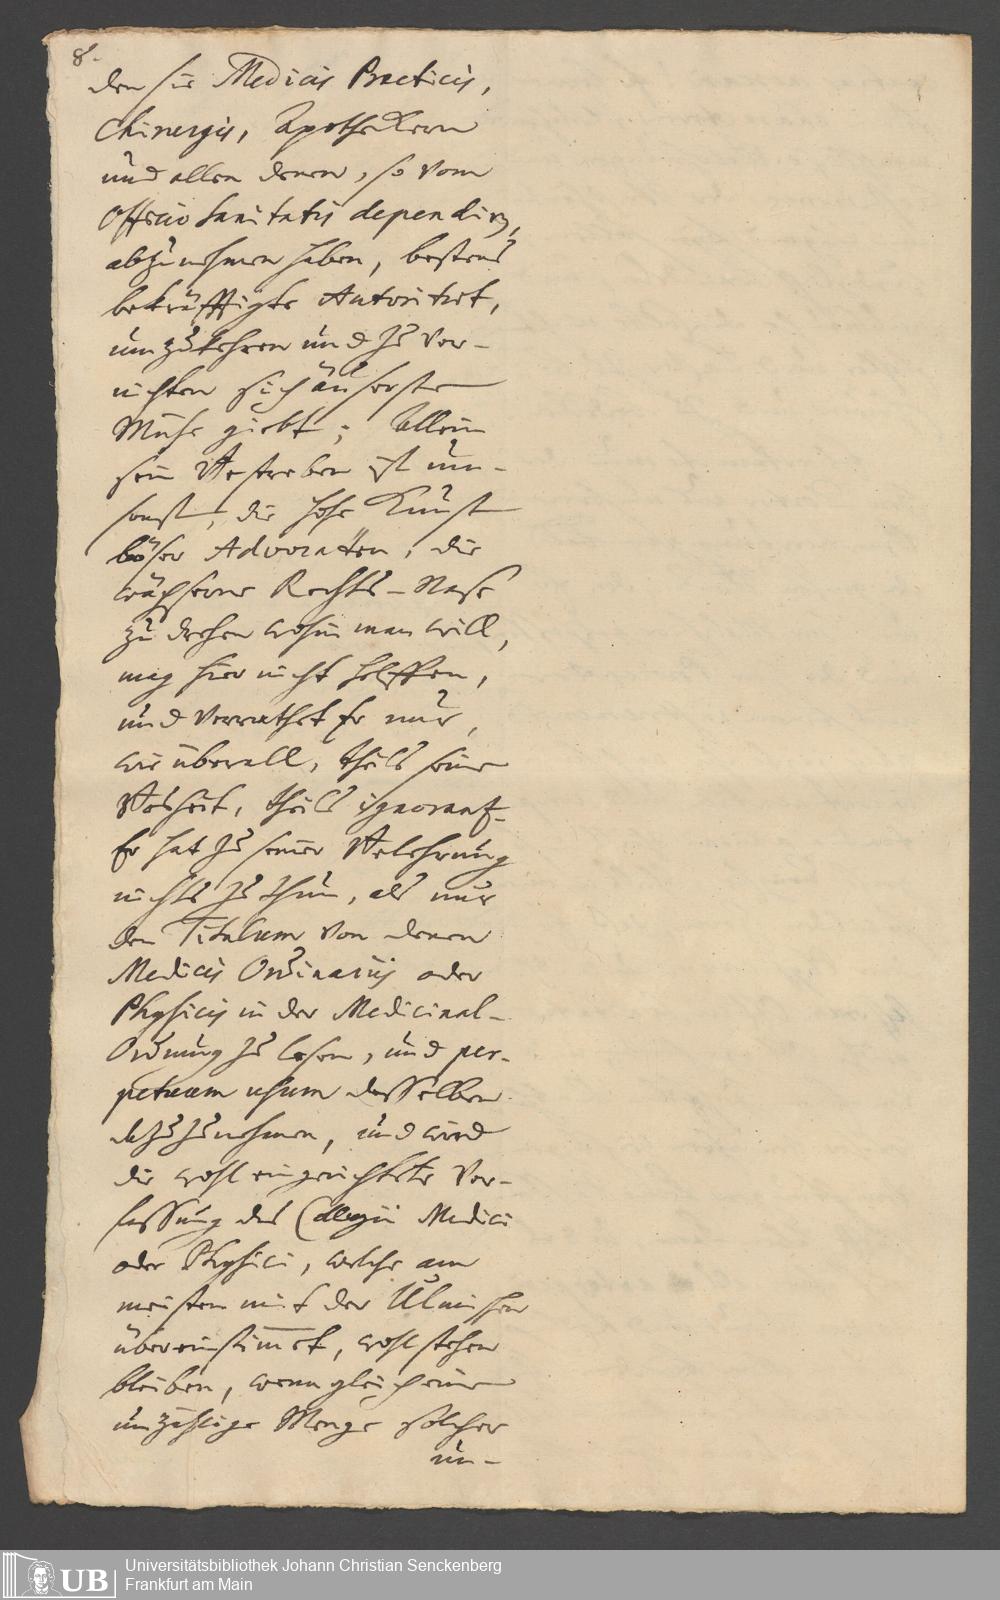 8.
den sie Medicis Practicis,
Chirurgis, Apotheckern
und allen denen, so vom
Officio Sanitatis dependirn,
abzunehmen haben, bestens
bekräfftigte Autoritaet,
umzukehren und zu ver-
nichten sich äuserste
Mühe giebt; Allein
sein Bestreben ist um-
sonst, die hohe Kunst
böser Advocatten, die
wächserne Rechts-Nase
zu drehen wohin man will,
mag hier nicht helffen,
und verrathet Er nur,
wie überall, theils seine
Bosheit, theils ignoranz.
Er hat zu seiner Belehrung
nichts zu thun, als nur
den Titulum von denen
Medicis Ordinariis oder
Physicis in der Medicinal-
Ordnung zu lesen, und per-
petuum usum desselben
dazuzunehmen, und wird
die wohl eingerichtete Ver-
fassung des Collegii Medici
oder Physici, welche am
meisten mit der Ulmischen
übereinstimet, wohl stehen
bleiben, wenn gleich eine
unzählige Menge solcher
un-
UB
Universitätsbibliothek Johann Christian Senckenberg
Frankfurt am Main